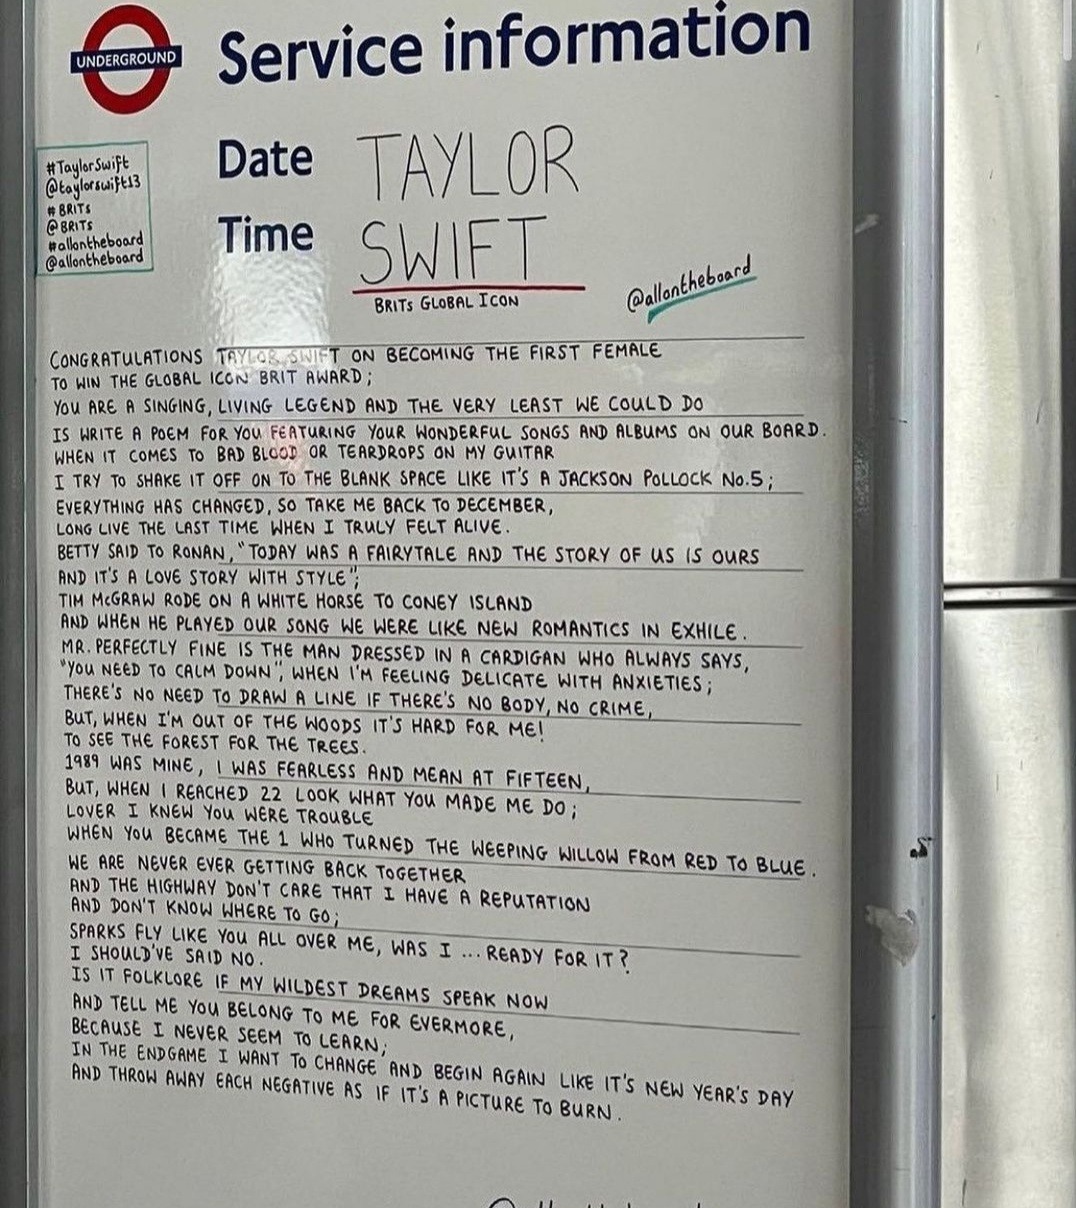 UNDERGROUND
Service information
Date TAYLOR
Time SWIFT
BRITs GLOBAL ICON
@allontheboard
#TaylorSwift
@taylorswift13
#BRITs
@BRITs
#allontheboard
@allontheboard
CONGRATULATIONS TAYLOR SWIFT ON BECOMING THE FIRST FEMALE
TO WIN THE GLOBAL ICON BRIT AWARD;
YOU ARE A SINGING, LIVING LEGEND AND THE VERY LEAST WE COULD DO
IS WRITE A POEM FOR YOU FEATURING YOUR WONDERFUL SONGS AND ALBUMS ON OUR BOARD.
WHEN IT COMES TO BAD BLOOD OR TEARDROPS ON MY GUITAR
I TRY TO SHAKE IT OFF ON TO THE BLANK SPACE LIKE IT'S A JACKSON POLLOCK No.5;
EVERYTHING HAS CHANGED, SO TAKE ME BACK TO DECEMBER,
LONG LIVE THE LAST TIME WHEN I TRULY FELT ALIVE.
BETTY SAID TO RONAN, "TODAY WAS A FAIRYTALE AND THE STORY OF US IS OURS
AND IT'S A LOVE STORY WITH STYLE";
TIM McGRAW RODE ON A WHITE HORSE TO CONEY ISLAND
AND WHEN HE PLAYED OUR SONG WE WERE LIKE NEW ROMANTICS IN EXHILE.
MR. PERFECTLY FINE IS THE MAN DRESSED IN A CARDIGAN WHO ALWAYS SAYS,
"YOU NEED TO CALM DOWN", WHEN I'M FEELING DELICATE WITH ANXIETIES;
THERE'S NO NEED TO DRAW A LINE IF THERE'S NO BODY, NO CRIME,
BUT, WHEN I'M OUT OF THE WOODS IT'S HARD FOR ME!
TO SEE THE FOREST FOR THE TREES.
1989 WAS MINE, I WAS FEARLESS AND MEAN AT FIFTEEN,
BUT, WHEN I REACHED 22 LOOK WHAT YOU MADE ME DO;
LOVER I KNEW YOU WERE TROUBLE
WHEN YOU BECAME THE 1 WHO TURNED THE WEEPING WILLOW FROM RED TO BLUE.
WE ARE NEVER EVER GETTING BACK TOGETHER
AND THE HIGHWAY DON'T CARE THAT I HAVE A REPUTATION
AND DON'T KNOW WHERE TO GO;
SPARKS FLY LIKE YOU ALL OVER ME, WAS I ... READY FOR IT?
I SHOULD'VE SAID NO.
IS IT FOLKLORE IF MY WILDEST DREAMS SPEAK NOW
AND TELL ME YOU BELONG TO ME FOR EVERMORE,
BECAUSE I NEVER SEEM TO LEARN;
IN THE ENDGAME I WANT TO CHANGE AND BEGIN AGAIN LIKE IT'S NEW YEAR'S DAY
AND THROW AWAY EACH NEGATIVE AS IF IT'S A PICTURE TO BURN.